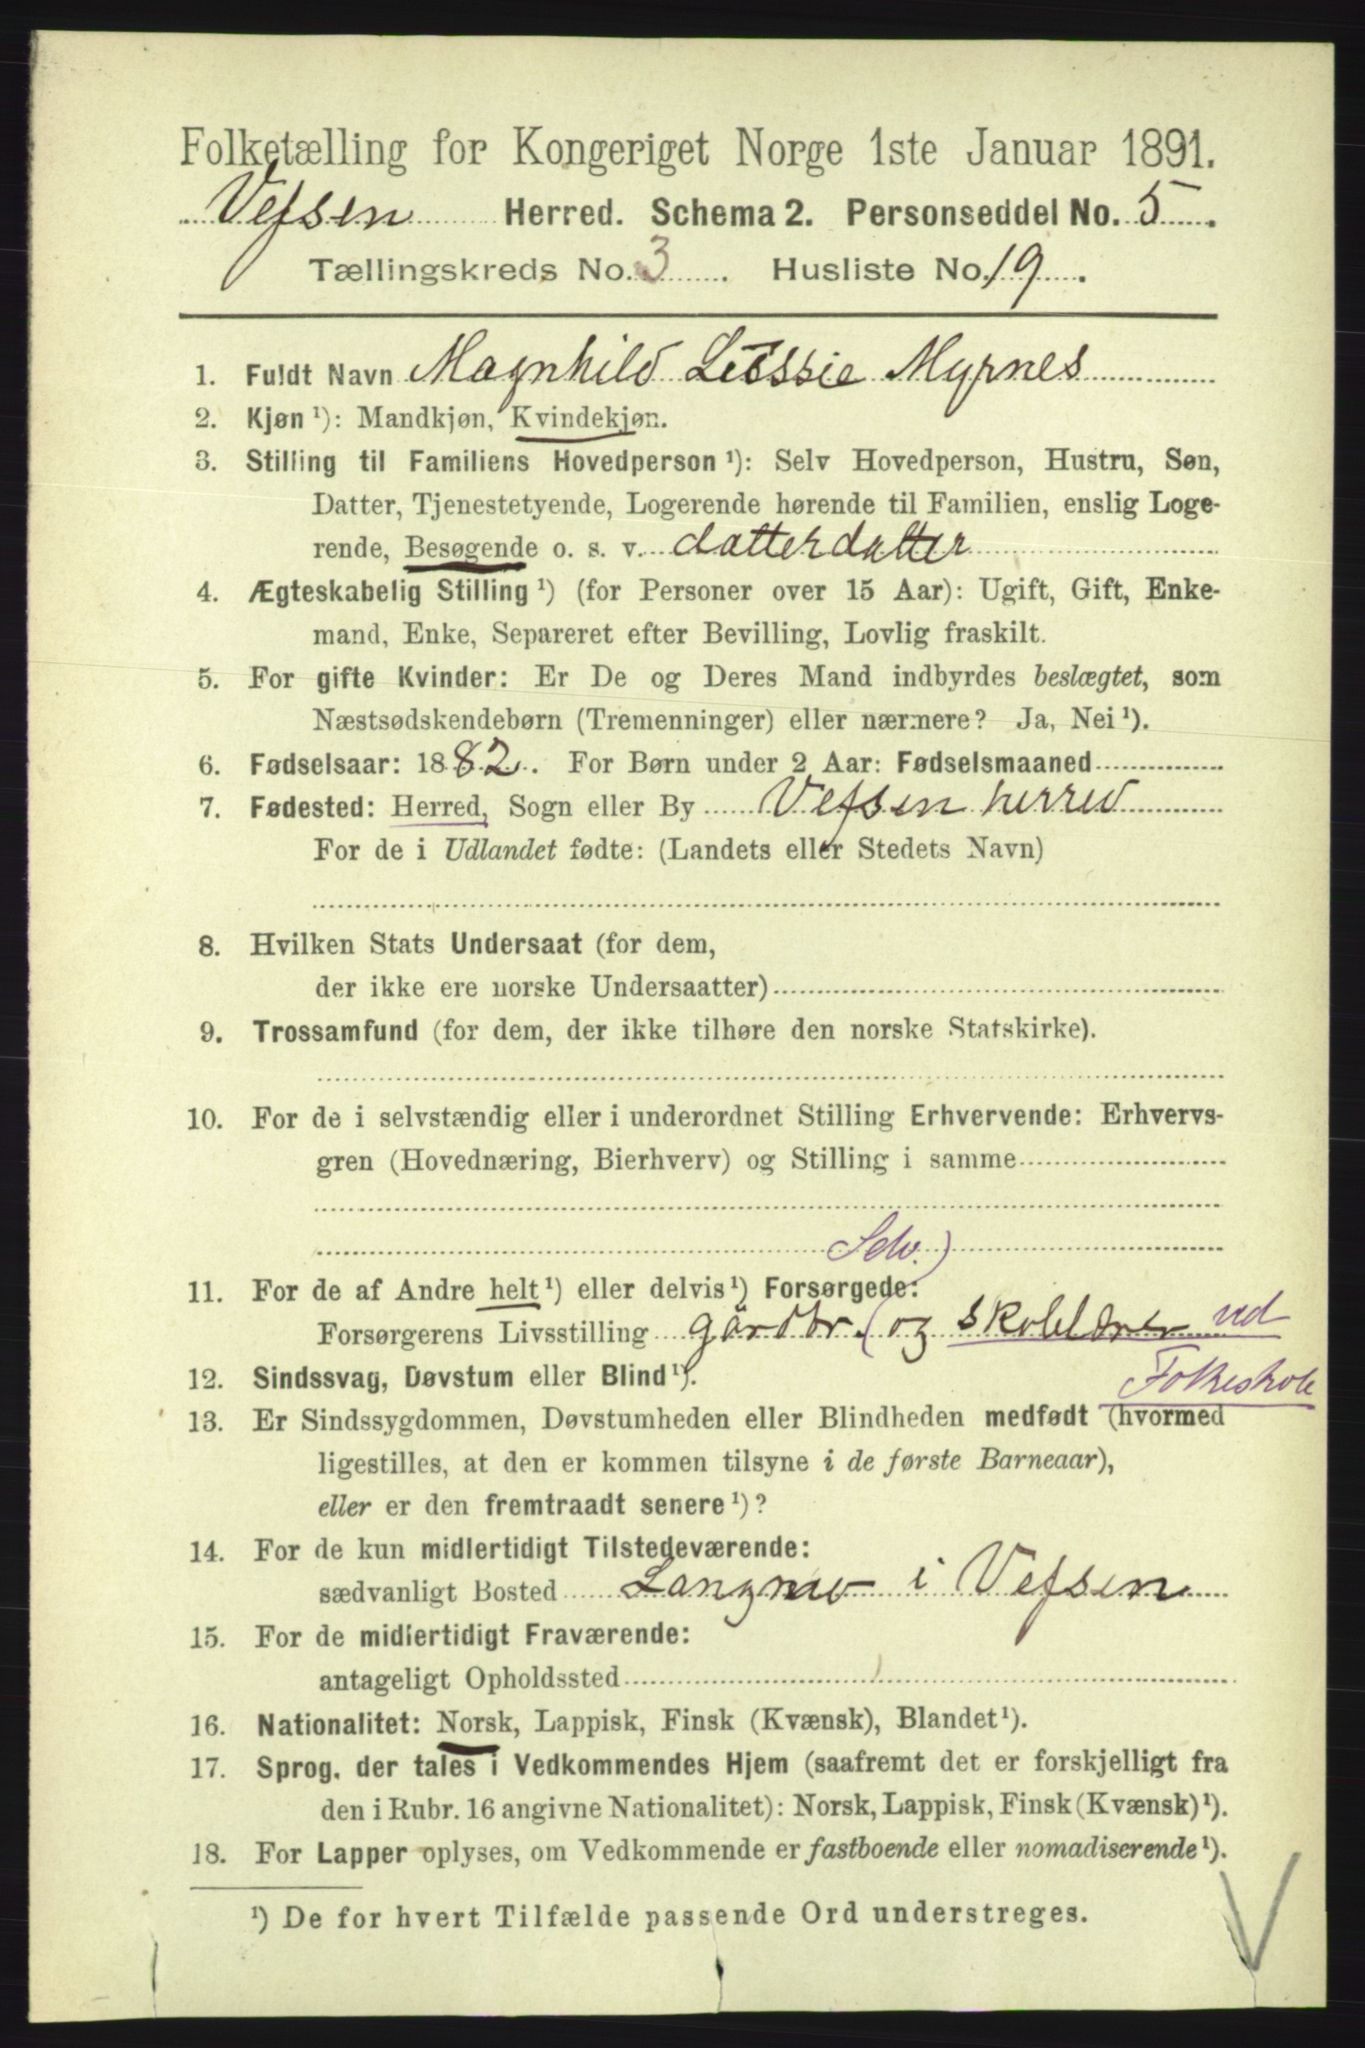 Folketælling for Kongeriget Norge 1ste Januar 1891.
Vefsen Herred. Schema 2. Personseddel No. 5.
Tællingskreds No. 3. Husliste No. 19.
1. Fuldt Navn Magnhild Myrnes
2. Kjøn ¹): Mandkjøn, Kvindekjøn.
3. Stilling til Familiens Hovedperson ¹): Selv Hovedperson, Hustru, Søn,
Datter, Tjenestetyende, Logerende hørende til Familien, enslig Loge-
rende, Besøgende o. s. v. datterdatter
4. Ægteskabelig Stilling ¹) (for Personer over 15 Aar): Ugift, Gift, Enke-
mand, Enke, Separeret efter Bevilling, Lovlig fraskilt.
5. For gifte Kvinder: Er De og Deres Mand indbyrdes beslægtet, som
Næstsødskendebørn (Tremenninger) eller nærmere? Ja, Nei ¹).
6. Fødselsaar: 1882. For Børn under 2 Aar: Fødselsmaaned
7. Fødested: Herred, Sogn eller By Vefsen herred
For de i Udlandet fødte: (Landets eller Stedets Navn)
8. Hvilken Stats Undersaat (for dem,
der ikke ere norske Undersaatter)
9. Trossamfund (for dem, der ikke tilhøre den norske Statskirke).
10. For de i selvstændig eller i underordnet Stilling Erhvervende: Erhvervs-
gren (Hovednæring, Bierhverv) og Stilling i samme
Selv.)
11. For de af Andre helt ¹) eller delvis ¹) Forsørgede:
Forsørgerens Livsstilling gårdbr. (og skolelærer ved
Folkeskole
12. Sindssvag, Døvstum eller Blind ¹).
13. Er Sindssygdommen, Døvstumheden eller Blindheden medfødt (hvormed
ligestilles, at den er kommen tilsyne i de første Barneaar),
eller er den fremtraadt senere ¹)?
14. For de kun midlertidigt Tilstedeværende:
sædvanligt Bosted i Vefsen
15. For de midlertidigt Fraværende:
antageligt Opholdssted
16. Nationalitet: Norsk, Lappisk, Finsk (Kvænsk), Blandet ¹).
17. Sprog, der tales i Vedkommendes Hjem (saafremt det er forskjelligt fra
den i Rubr. 16 angivne Nationalitet): Norsk, Lappisk, Finsk (Kvænsk) ¹).
18. For Lapper oplyses, om Vedkommende er fastboende eller nomadiserende ¹).
¹) De for hvert Tilfælde passende Ord understreges.